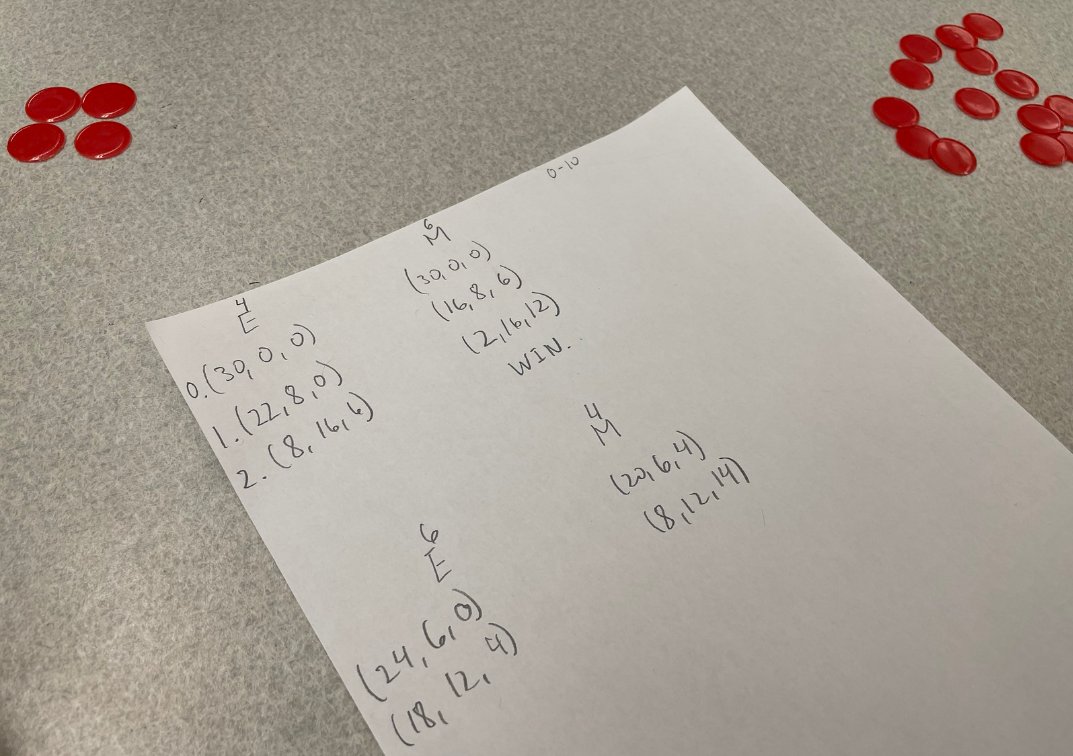 0-10
4
E
0. (30, 0, 0)
1. (22, 8, 0)
2. (8, 16, 6)
6
M
(30, 0, 0)
(16, 8, 6)
(2, 16, 12)
WIN.
4
M
(20, 6, 4)
(8, 12, 14)
6
E
(24, 6, 0)
(18, 12, 4)